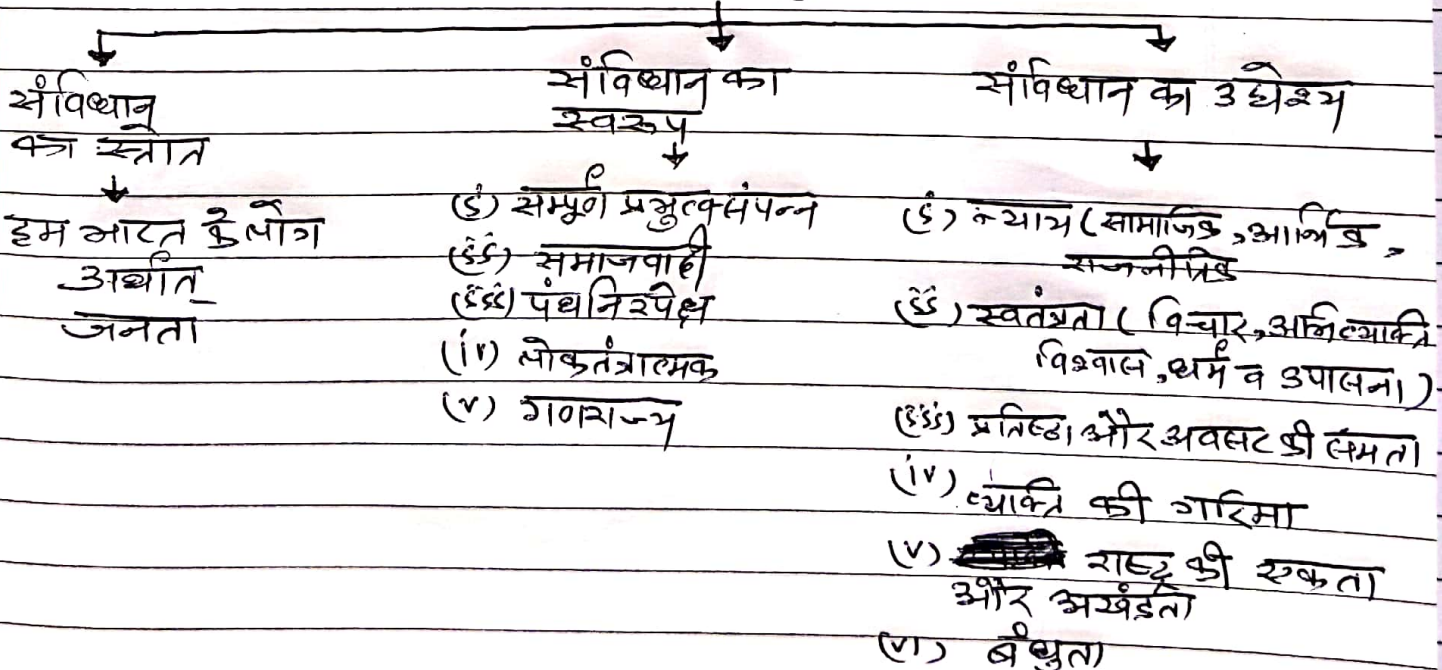 संविधान
का स्त्रोत
हम भारत के लोग
अर्थात्
जनता
संविधान का
स्वरूप
(i) सम्पूर्ण प्रभुत्वसंपन्न
(ii) समाजवादी
(iii) पंथनिरपेक्ष
(iv) लोकतंत्रात्मक
(v) गणराज्य
संविधान का उद्येश्य
(i) न्याय (सामाजिक, आर्थिक,
राजनीतिक
(ii) स्वतंत्रता ( विचार, अभिव्यक्ति
विश्वास, धर्म व उपासना)
(iii) प्रतिष्ठा और अवसर की समता
(iv) व्यक्ति की गरिमा
(v) राष्ट्र की एकता
और अखंडता
(vi) बंधुता